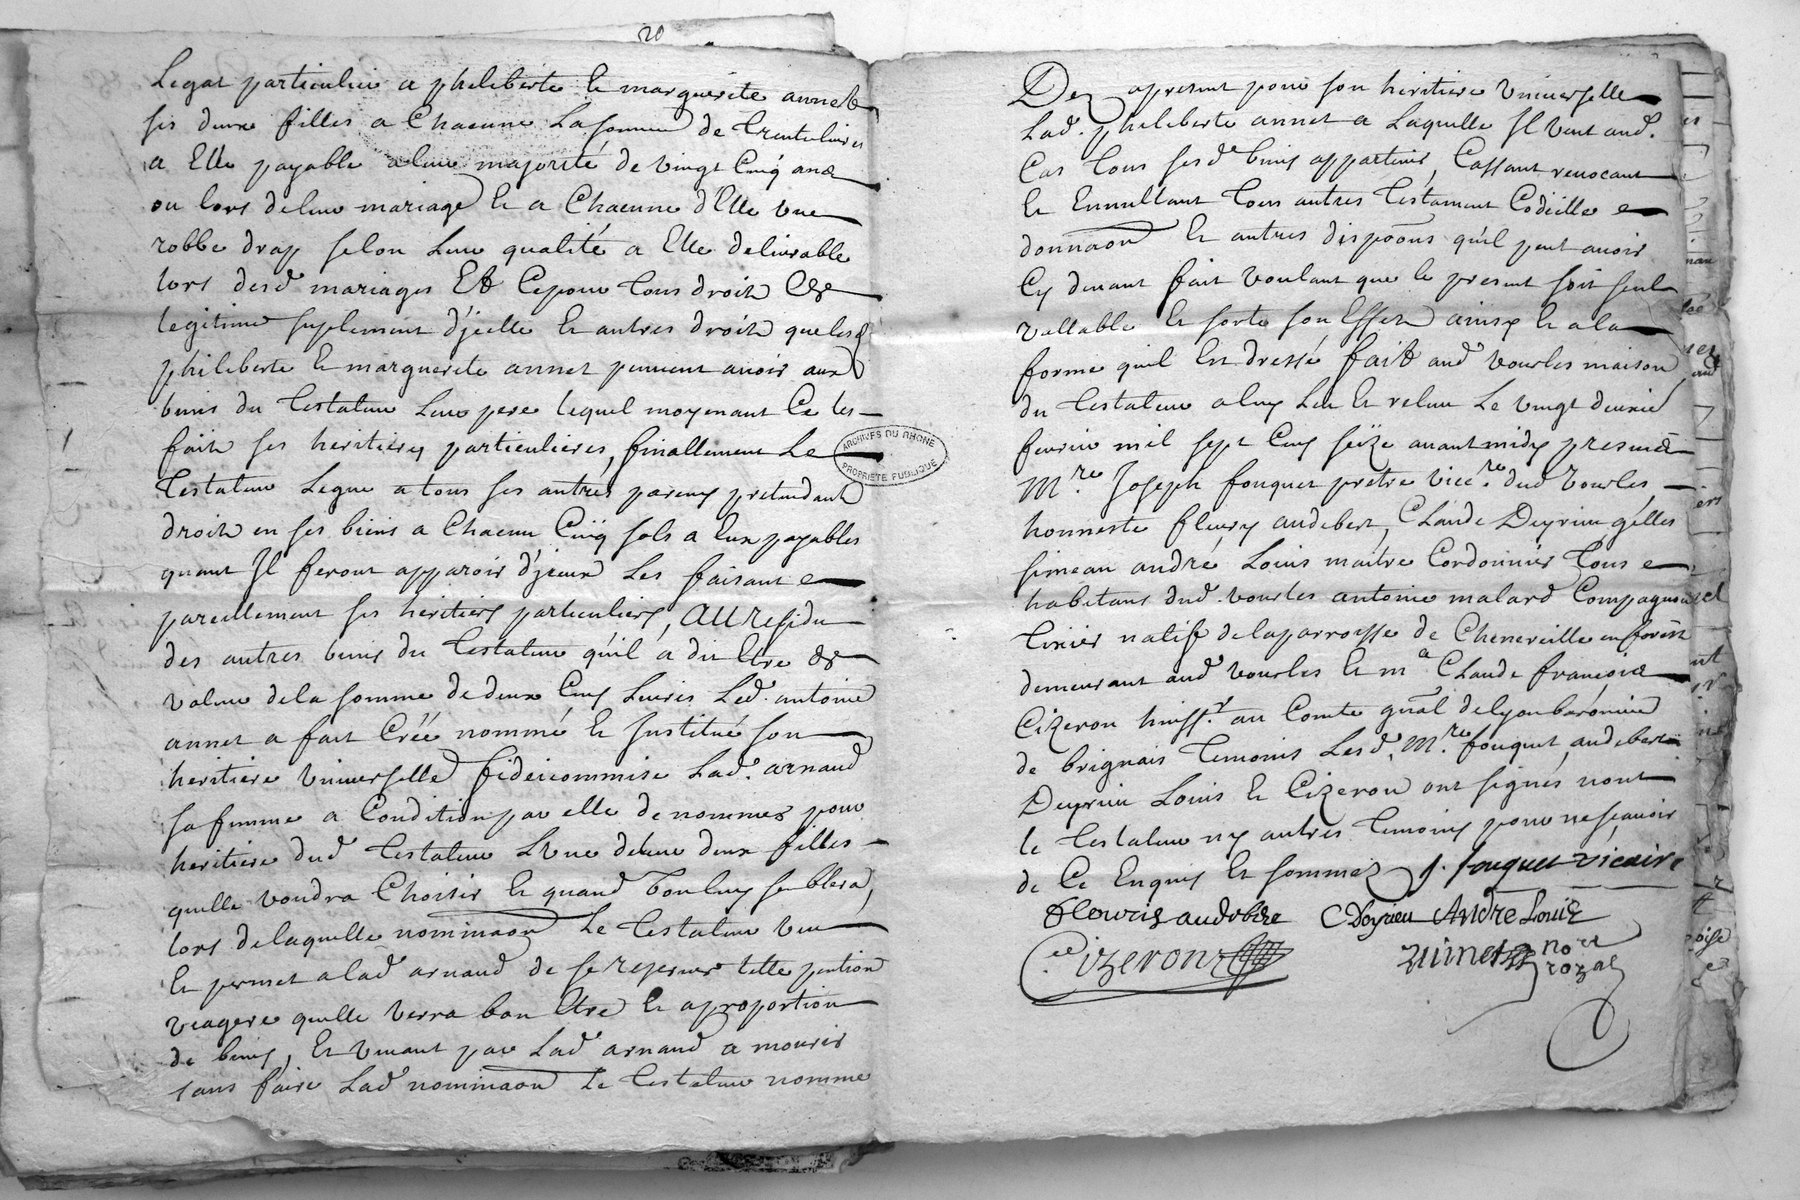 20
Legat particulier a pheleberte Et marguerite annet
ses deux filles a Chacune La somme de trente livres
a Elle payable a leur majorité de vingt Cinq ans
ou lors de leur mariage Et a Chacune d'Elle une
robbe drap selon Leur qualité a Elle delivrable
lors desd mariages Et Ce pour tous droits de
legitime suplement d'jcelle Et autres droits que lesd
phileberte Et marguerite annet peuvent avoir aux
biens du testateur Leur pere lequel moyenant Ce les
fait ses heritieres particulieres, finallement Le
testateur Legue a tous ses autres parens pretendant
droits en ses biens a Chacun Cinq sols a Eux payables
quant Jl feront apparoir d'jceux Les faisant
pareillement ses heritiers particuliers, AU residu
des autres biens du testateur qu'il a dit Etre de
valeur de la somme de deux Cens Livres Led. antoine
annet a fait Créé nommé Et Jnstitué son
heritiere universelle fideicommise Lad. arnaud
sa femme a Condition par elle de nommer pour
heritiere dud testateur L'une de leur deux filles
quelle voudra Choisir Et quand bon luy semblera,
lors de laquelle nominaon Le testateur veut
Et permet a lad arnaud de se reserver telle pention
viagere quelle verra bon Etre Et a proportion
de biens, Et venant par Lad arnaud a mourir
sans faire Lad nominaon Le testateur nomme
ARCHIVES DU RHONE
PROPRIETE PUBLIQUE
Dez apresent pour son heritiere universelle
Lad. pheleberte annet a Laquelle Jl veut aud.
Cas tous sesd biens appartenir, Cassant revocant
Et Ennullant tous autres testament Codicille
donnaon Et autres dispoons qu'il peut avoir
Cy devant fait voulant que le present soit seul
vallable Et sorte son Effet ainsy Et a la
forme quil Est dressé fait aud vourles maison
du testateur a luy Leu Et releu Le vingt deuxie
fevrier mil sept Cens seize avant midy presence
M.re Joseph fouquet pretre vice.re dud vourles
honneste fleury audebert, Claude Deyrieu gélles
simean andré Louis maitre Cordonnier tous
habitans dud. vourles antoine malard Compagnon
tixier natif de la parroisse de Chenereille en forest
demeurant aud vourles Et m.e Claude françois
Cizeron huiss.r au Comte gnal de Lyon baronnie
de brignais temoins Lesd. M.re fouquet, audebert
Deyrieu Louis Et Cizeron ont signés, nont
le testateur ny autres temoins pour ne sçavoir
de Ce Enquis Et sommez J. fouquet vicaire
fleuris audebere C Doyrieu Andre Louis
Cizeron nore
royal